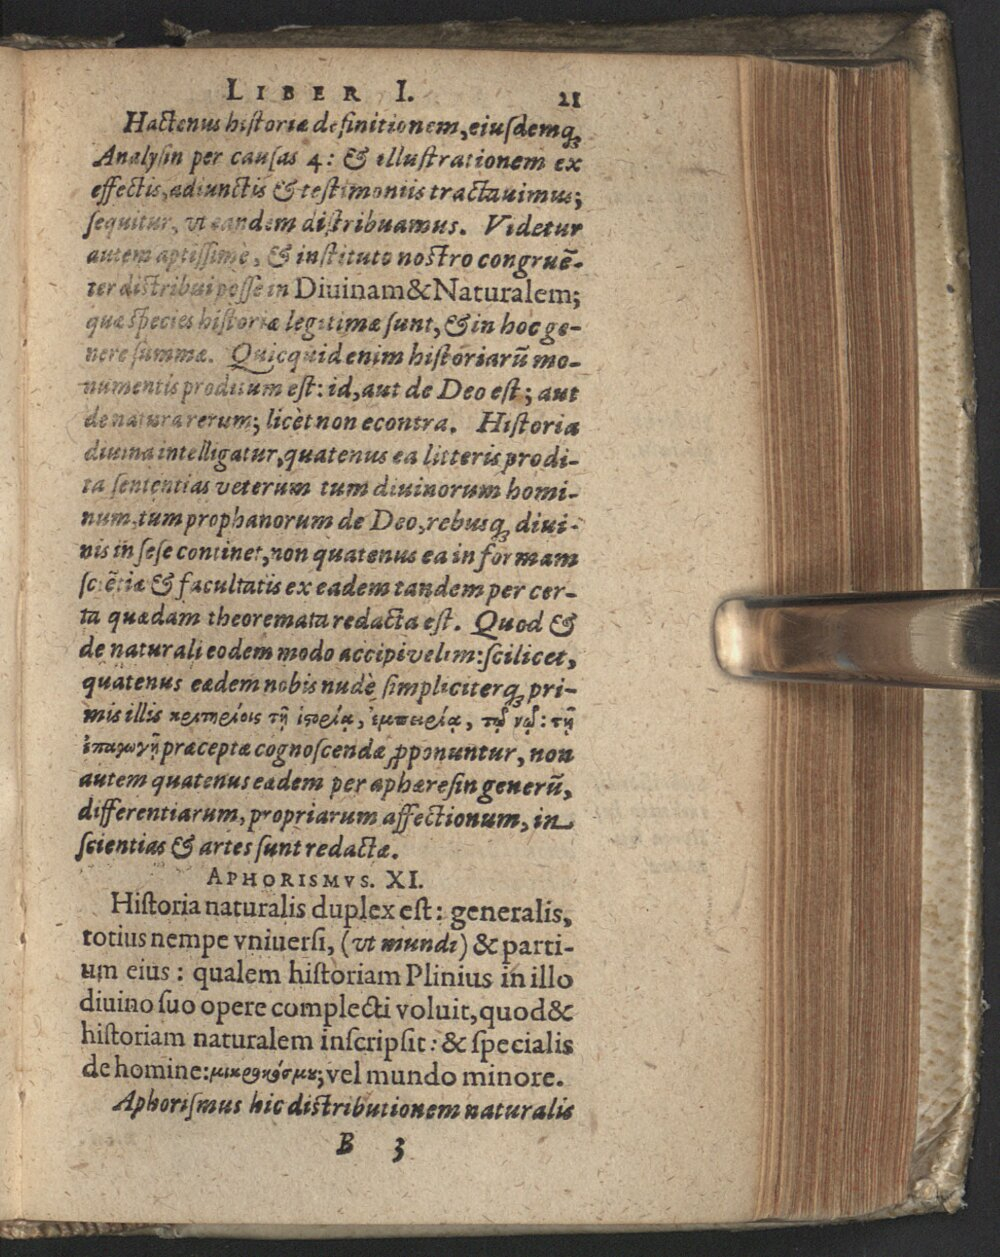 LIBER I. 21
Hactenus historiæ definitionem, eiusdemq́;
Analysin per causas 4: & illustrationem ex
effectis, adiunctis & testimoniis tractauimus;
sequitur, vt eandem distribuamus. Videtur
autem aptissimè, & instituto nostro congruē-
ter distribui posse in Diuinam & Naturalem;
quæ species historiæ legitimæ sunt, & in hoc ge-
nere summæ. Quicquid enim historiarū mo-
numentis proditum est: id, aut de Deo est; aut
de natura rerum; licèt non econtra. Historia
diuina intelligatur, quatenus ea litteris prodi-
ta sententias veterum tum diuinorum homi-
num, tum prophanorum de Deo, rebusq́; diui-
nis in sese continet, non quatenus ea in formam
sciētiæ & facultatis ex eadem tandem per cer-
ta quædam theoremata redacta est. Quod &
de naturali eodem modo accipi velim: scilicet,
quatenus eædem nobis nudè simpliciterq́; pri-
mis illis κριτηρίοις τῇ ἱστορίᾳ, ἐμπειρίᾳ, τῷ νῷ: τῇ
ἐπαγωγῇ præceptæ cognoscendæ ꝓponuntur, non
autem quatenus eædem per aphæresin generū,
differentiarum, propriarum affectionum, in
scientias & artes sunt redactæ.
APHORISMVS. XI.
Historia naturalis duplex est: generalis,
totius nempe vniuersi, (vt mundi) & parti-
um eius: qualem historiam Plinius in illo
diuino suo opere complecti voluit, quod &
historiam naturalem inscripsit: & specialis
de homine: μικροκόσμῳ; vel mundo minore.
Aphorismus hic distributionem naturalis
B 3